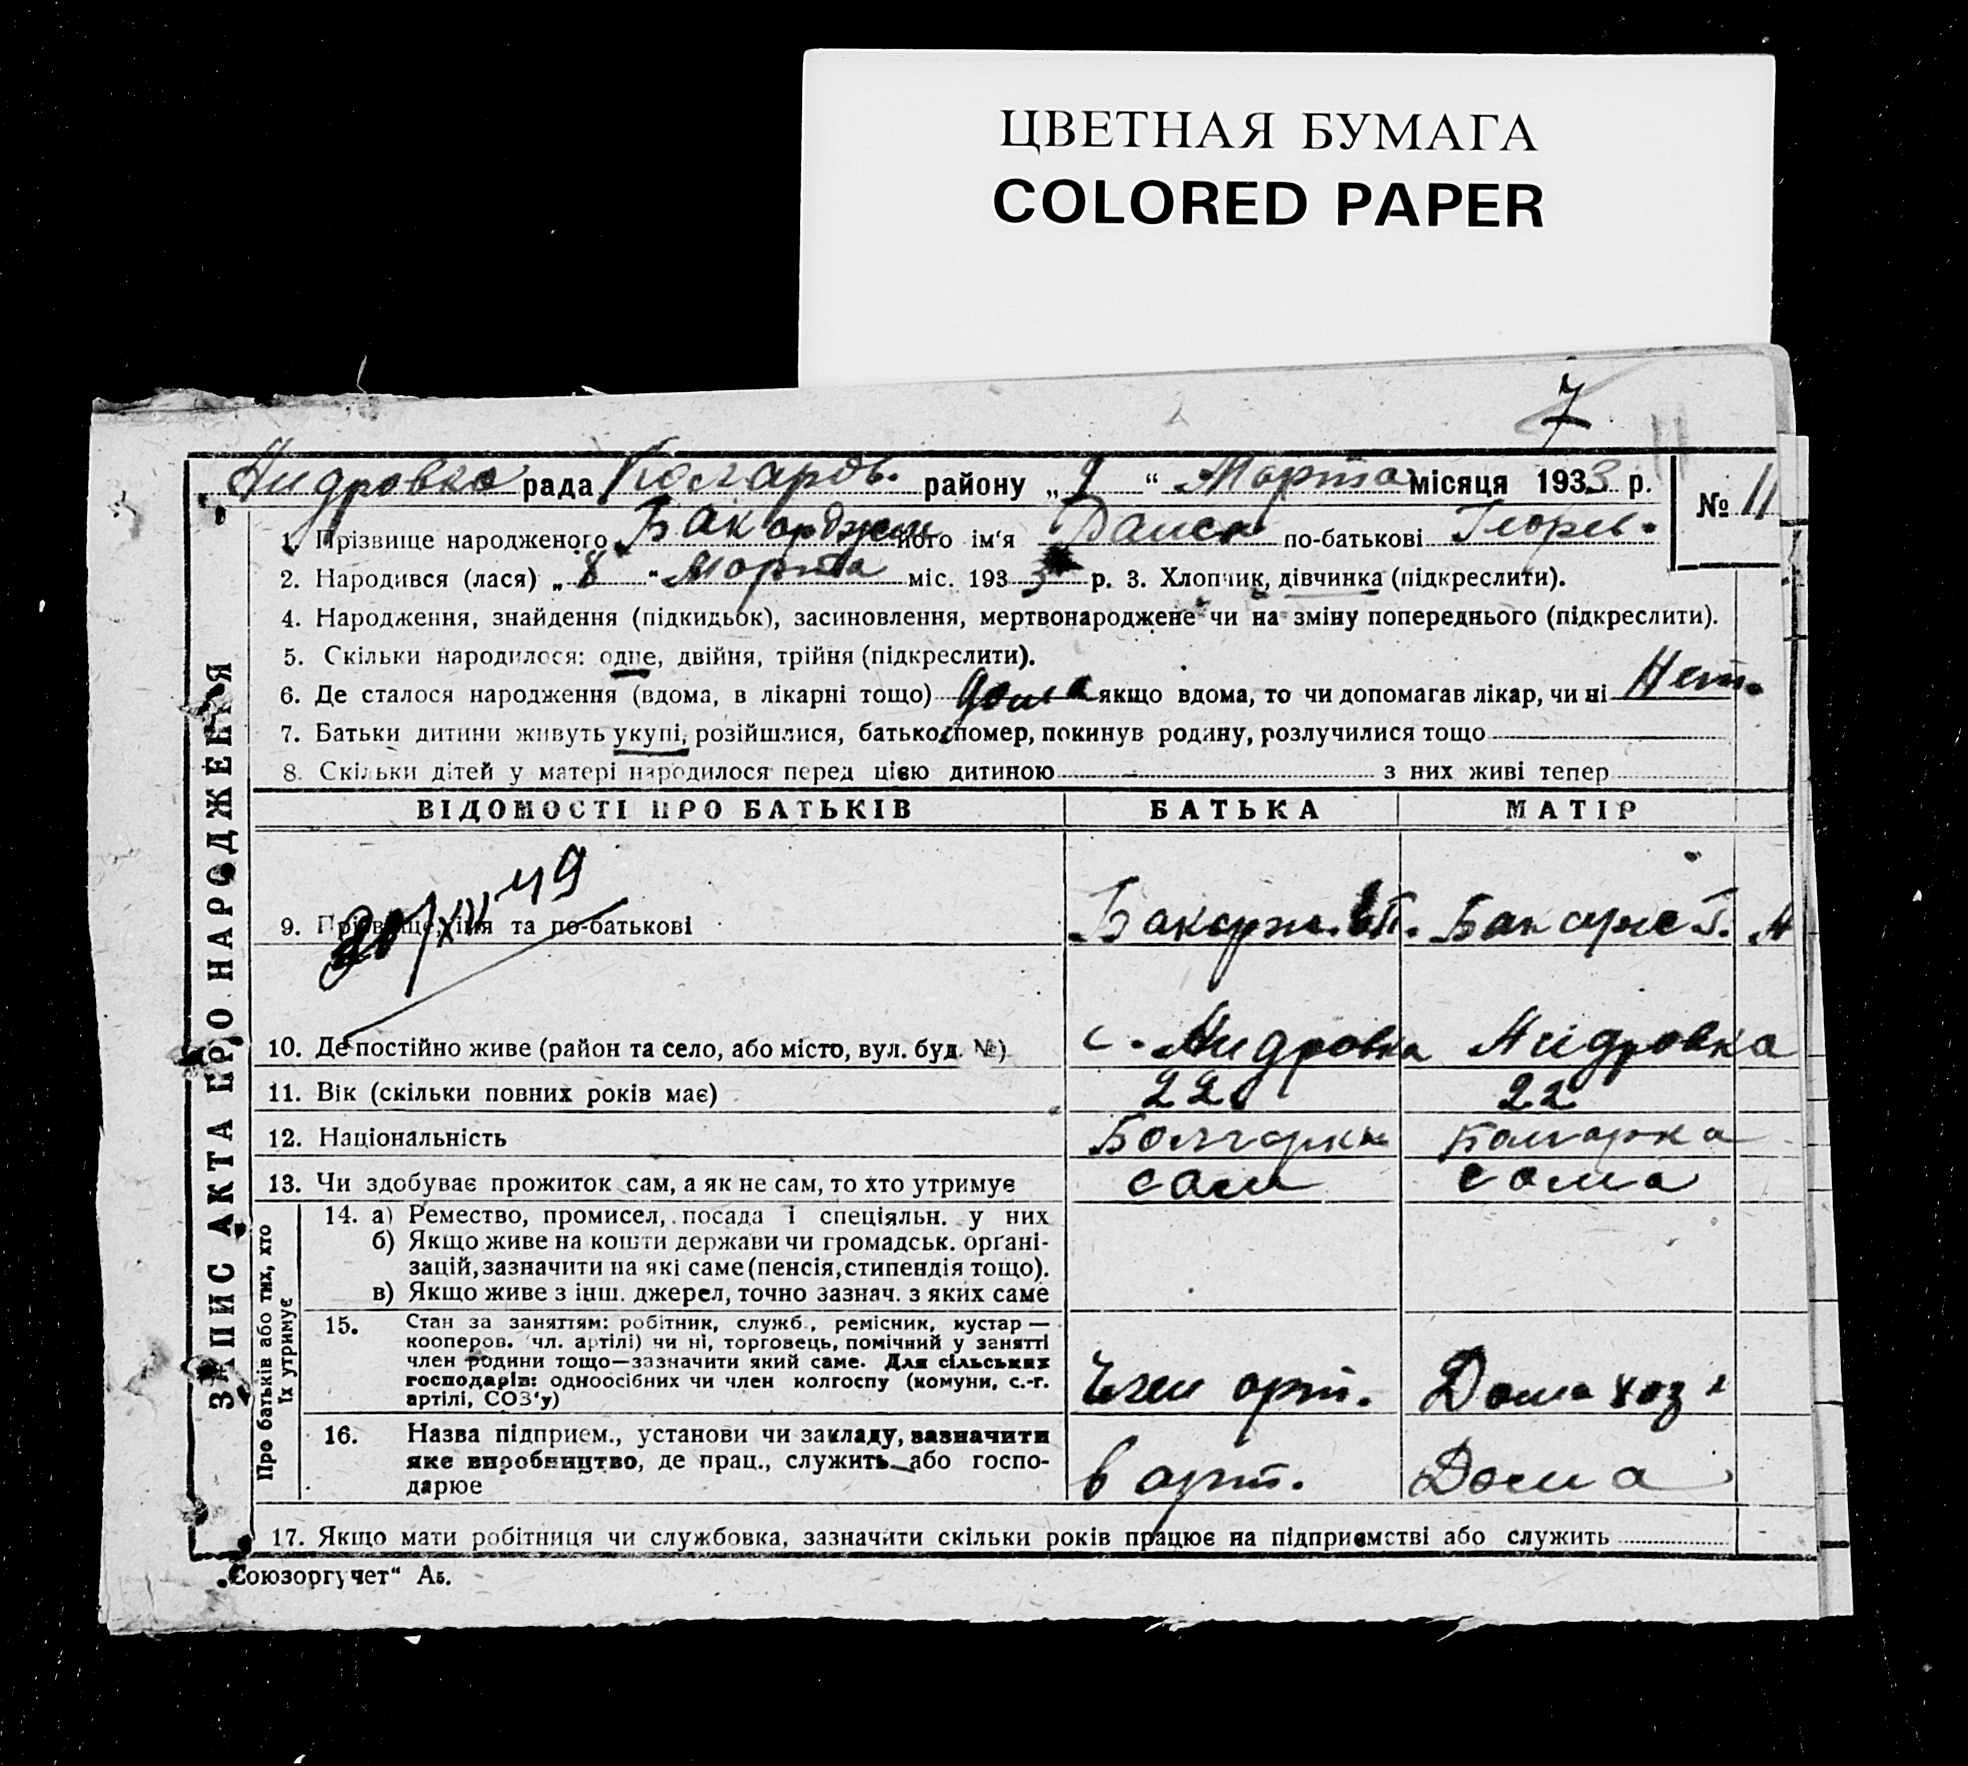 ЦВЕТНАЯ БУМАГА
COLORED PAPER
7
11
рада Коларов. району „9“ Марта місяця 1933 р. № 11
1. Прізвище народженого Бакарджи його ім'я по-батькові Георгев.
2. Народився (лася) „8“ Марта міс. 1933 р. 3. Хлопчик, дівчинка (підкреслити).
4. Народження, знайдення (підкидьок), засиновлення, мертвонароджене чи на зміну попереднього (підкреслити).
5. Скільки народилося: одне, двійня, трійня (підкреслити).
6. Де сталося народження (вдома, в лікарні тощо) дома якщо вдома, то чи допомагав лікар, чи ні Нет.
7. Батьки дитини живуть укупі, розійшлися, батько помер, покинув родину, розлучилися тощо
8. Скільки дітей у матері народилося перед цією дитиною з них живі тепер
ВІДОМОСТІ ПРО БАТЬКІВ БАТЬКА МАТІР
9. Прізвище, ім'я та по-батькові Бакарж. Бакарже Г.
10. Де постійно живе (район та село, або місто, вул. буд. №) с.
11. Вік (скільки повних років має) 22 22
12. Національність Болгарин Болгарка
13. Чи здобуває прожиток сам, а як не сам, то хто утримує сам сама
14. а) Ремество, промисел, посада і спеціяльн. у них
б) Якщо живе на кошти держави чи громадськ. орґані-
зацій, зазначити на які саме (пенсія, стипендія тощо).
в) Якщо живе з інш. джерел, точно зазнач. з яких саме
15. Стан за заняттям: робітник, служб., ремісник, кустар —
кооперов. чл. артілі) чи ні, торговець, помічний у занятті
член родини тощо—зазначити який саме. Для сільських
господарів: одноосібних чи член колгоспу (комуни, с.-г.
артілі, СОЗ'у) Член арт. Дома хоз
16. Назва підприєм., установи чи закладу, зазначити
яке виробництво, де прац., служить або госпо-
дарює в арт. Дома
17. Якщо мати робітниця чи службовка, зазначити скільки років працює на підприємстві або служить
ЗАПИС АКТА ПРО НАРОДЖЕННЯ
Про батьків або тих, хто
їх утримує
„Союзоргучет“ А5.